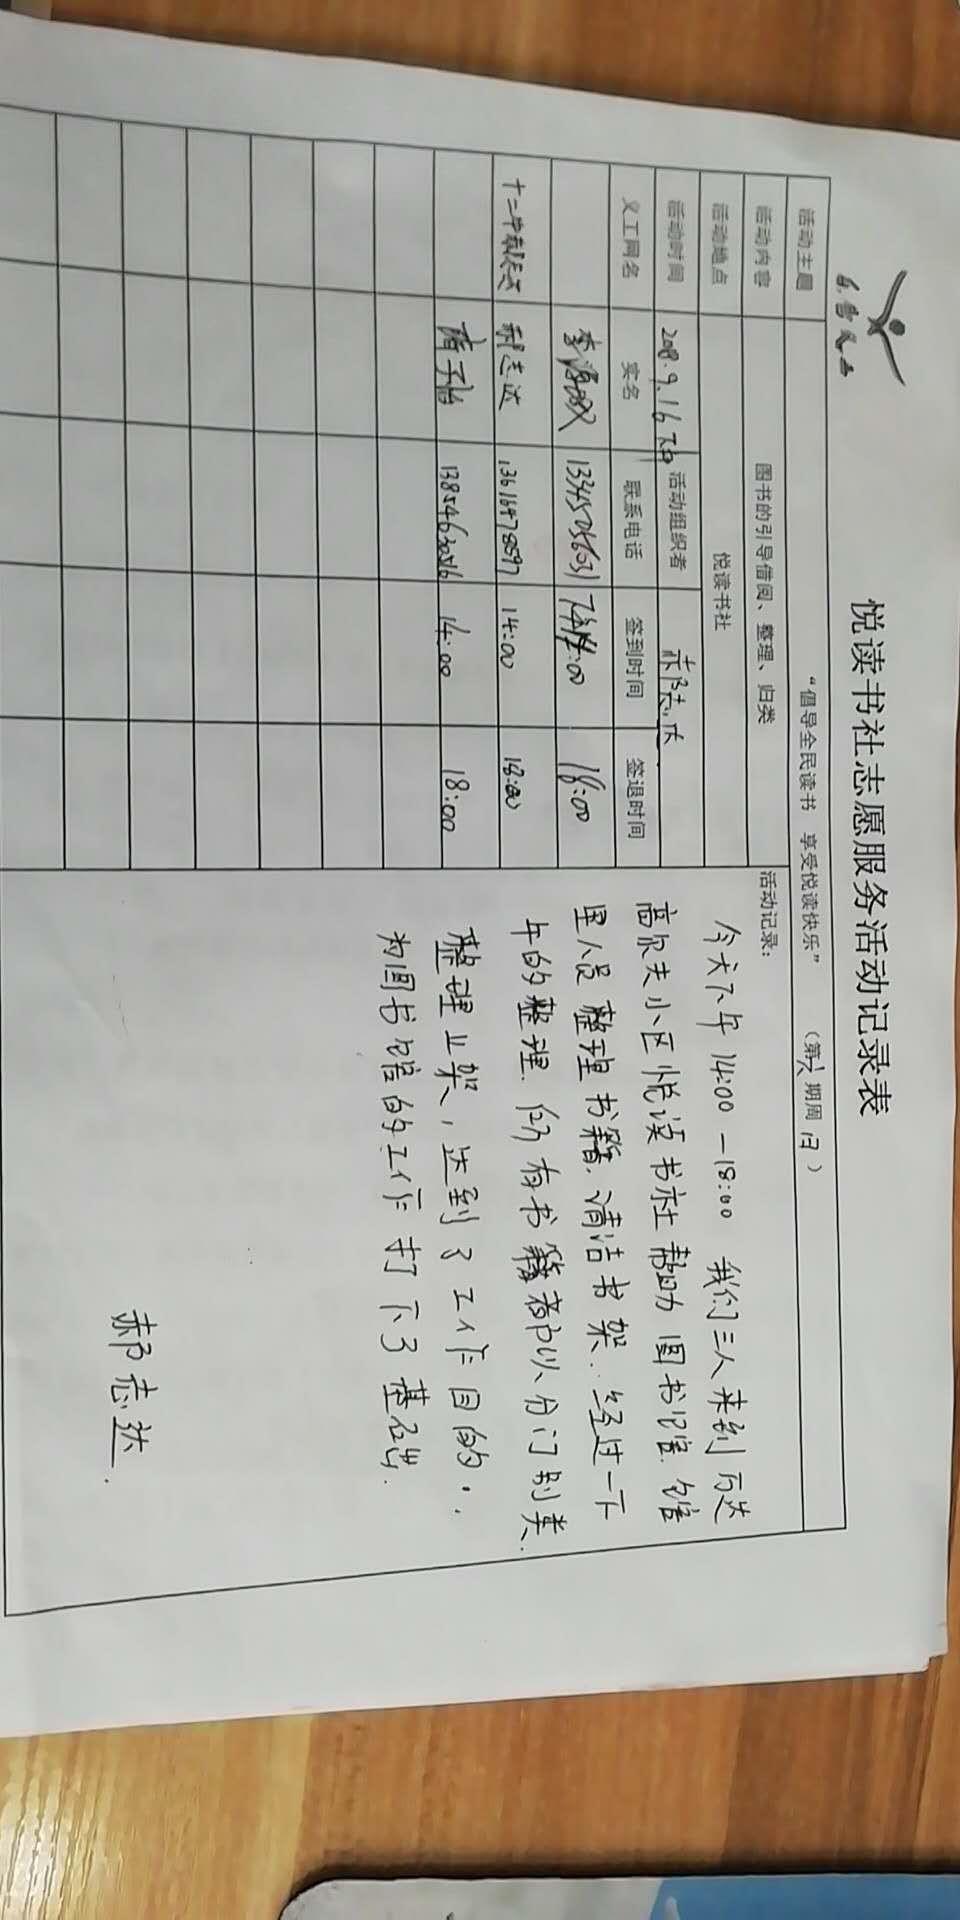 悦读书社志愿服务活动记录表
活动主题 “倡导全民读书 享受悦读快乐” （第六期周日）
活动内容 图书的引导借阅、整理、归类
活动地点 悦读书社
活动时间 2018.9.16 下午 活动组织者 郝志达
义工网名 实名 联系电话 签到时间 签退时间
14:00 18:00
郝志达 13616478597 14:00 18:00
子怡 13854630516 14:00 18:00
活动记录:
今天下午14:00—18:00 我们三人来到万达
高尔夫小区悦读书社帮助图书馆馆
里人员整理书籍.清洁书架.经过一下
午的整理.所有书籍都以分门别类.
整理上架,达到了工作目的.
为图书馆的工作打下了基础.
郝志达.